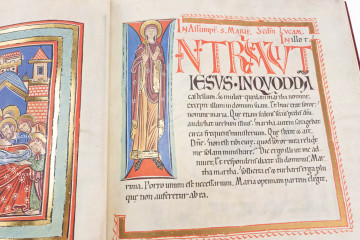 IN ASSUMPT. S. MARIE. SECDM LUCAM.
IN ILLO T.
INTRAUIT
IESUS · IN QUODDA
castellum. & mulier quedam martha nomine,
excepit illum in domum suam. Et huic erat soror
nomine maria. Que etiam sedens secus pedes dni,
audiebat uerbum illius. martha autem satagebat
circa frequens ministerium. Que stetit & ait.
Dne. non est tibi cure, quod soror mea reliqt
me solam ministrare. Dic ergo illi ut me ad
iuuet. Et respondens dixit illi dominus. Mar
tha martha. sollicita es & turbaris erga plu
rima. Porro unum est necessarium. Maria optimam partem elegit,
que non auferetur ab ea.